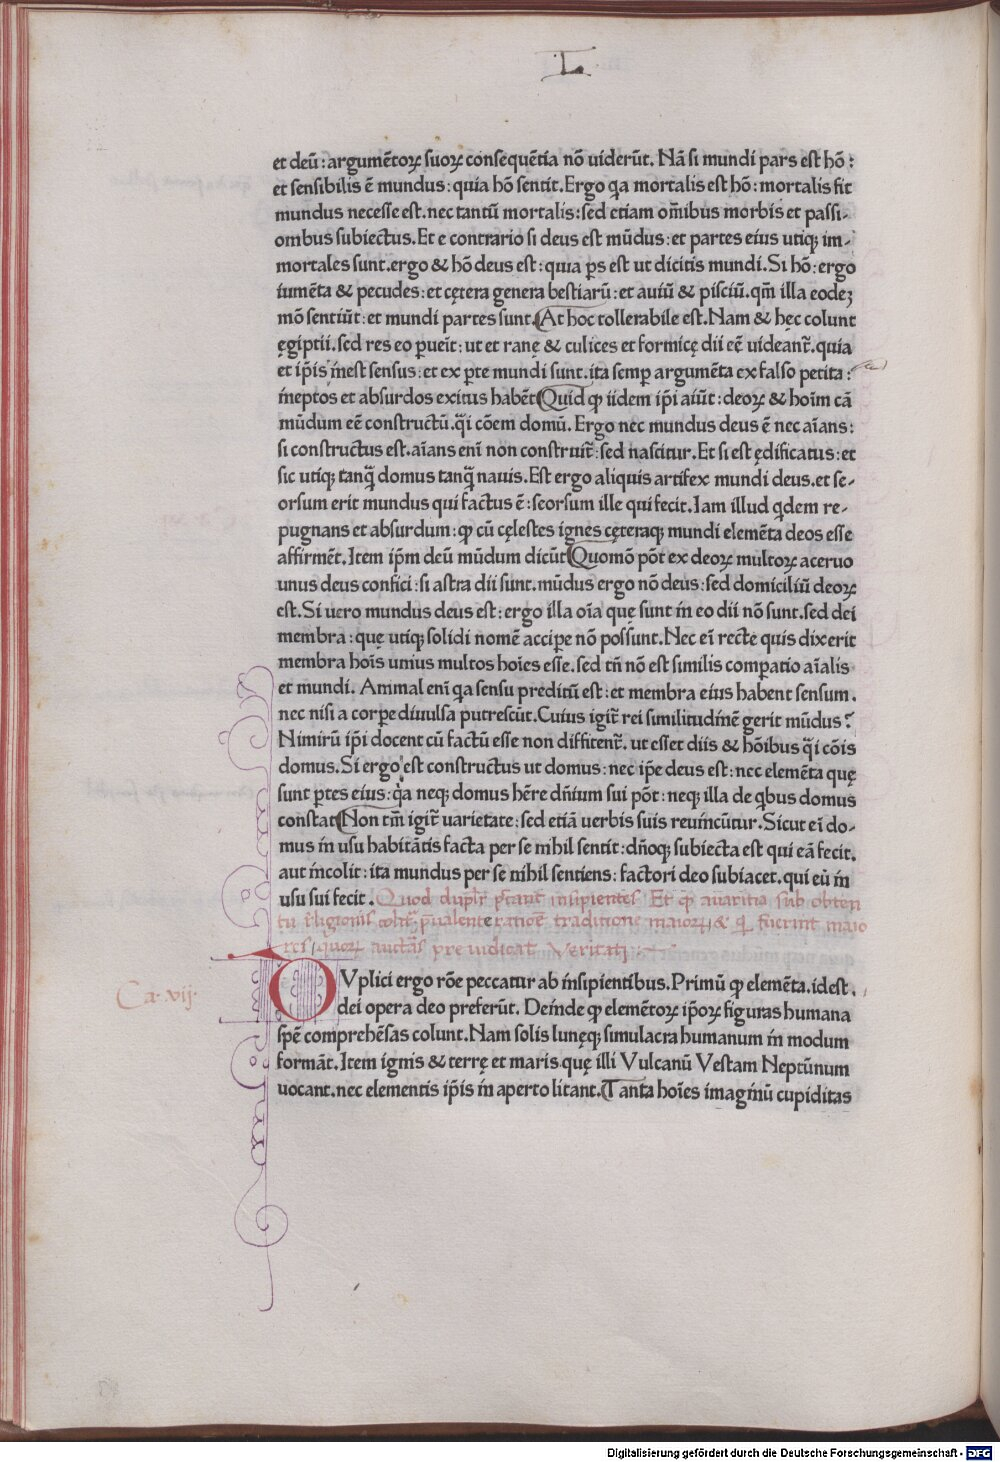 L
et deū: argumētoꝝ suoꝝ consequētia nō uiderūt. Nā si mundi pars est hō:
et sensibilis ē mundus: quia hō sentit. Ergo qa mortalis est hō: mortalis sit
mundus necesse est. nec tantū mortalis: sed etiam om̄ibus morbis et passi-
onibus subiectus. Et e contrario si deus est mūdus: et partes eius utiqꝫ im-
mortales sunt. ergo & hō deus est: quia ꝑs est ut dicitis mundi. Si hō: ergo
iumēta & pecudes: et cętera genera bestiarū: et auiū & pisciū. qm̄ illa eodeꝫ
mō sentiūt: et mundi partes sunt. At hoc tollerabile est. Nam & hęc colunt
ęgiptii. sed res eo ꝑueīt: ut et ranę & culices et formicę dii eē uideant̄. quia
et ip̄is inest sensus: et ex ꝑte mundi sunt. ita semꝑ argumēta ex falso petita:
ineptos et absurdos exitus habēt Quid ꝙ iidem ip̄i aiūt: deoꝝ & hoīm cā
mūdum eē constructū. q̄i cōem domū. Ergo nec mundus deus ē nec aīans:
si constructus est. aīans enī non construit̄: sed nascitur. Et si est ędificatus: et
sic utiqꝫ tanq̄ domus tanq̄ nauis. Est ergo aliquis artifex mundi deus. et se-
orsum erit mundus qui factus ē: seorsum ille qui fecit. Iam illud qdem re-
pugnans et absurdum: ꝙ cū cęlestes ignes cęteraqꝫ mundi elemēta deos esse
affirmēt. Item ip̄m deū mūdum dicūt Quomō pōt ex deoꝝ multoꝝ aceruo
unus deus confici: si astra dii sunt. mūdus ergo nō deus: sed domiciliū deoꝝ
est. Si uero mundus deus est: ergo illa oīa quę sunt in eo dii nō sunt. sed dei
membra: quę utiqꝫ solidi nomē acciꝑe nō possunt. Nec eī recte quis dixerit
membra hoīs unius multos hoīes esse. sed tn̄ nō est similis comꝑatio aīalis
et mundi. Animal enī qa sensu preditū est: et membra eius habent sensum.
nec nisi a corꝑe diuulsa putrescūt. Cuius igit̄ rei similitudinē gerit mūdus?
Nimirū ip̄i docent cū factū esse non diffitent̄. ut esset diis & hōibus q̄i cōis
domus. Si ergo est constructus ut domus: nec ip̄e deus est: nec elemēta quę
sunt ꝑtes eius: q̄a neqꝫ domus hēre dn̄ium sui pōt: neqꝫ illa de qbus domus
constat Non tm̄ igit̄ uarietate: sed etiā uerbis suis reuincūtur. Sicut eī do-
mus in usu habitātis facta per se nihil sentit: dn̄oqꝫ subiecta est qui eā fecit.
aut incolit: ita mundus per se nihil sentiens: factori deo subiacet. qui eū in
usu sui fecit. Quod duplr̄ insipientes Et ꝙ auaritia sub obten
tu religionis p̄ualent ratioē traditione maioꝝ & fuerint maio
res quoꝝ auctās pre iudicat Veritati
Ca. vij
DVplici ergo rōe peccatur ab insipientibus. Primū ꝙ elemēta. idest.
dei opera deo preferūt. Deinde ꝙ elemētoꝝ ip̄oꝝ figuras humana
spē comprehēsas colunt. Nam solis lunęqꝫ simulacra humanum in modum
formāt. Item ignis & terrę et maris. quę illi Vulcanū Vestam Neptūnum
uocant. nec elementis ip̄is in aperto litant. Tanta hoīes imaginū cupiditas
Digitalisierung gefördert durch die Deutsche Forschungsgemeinschaft - DFG